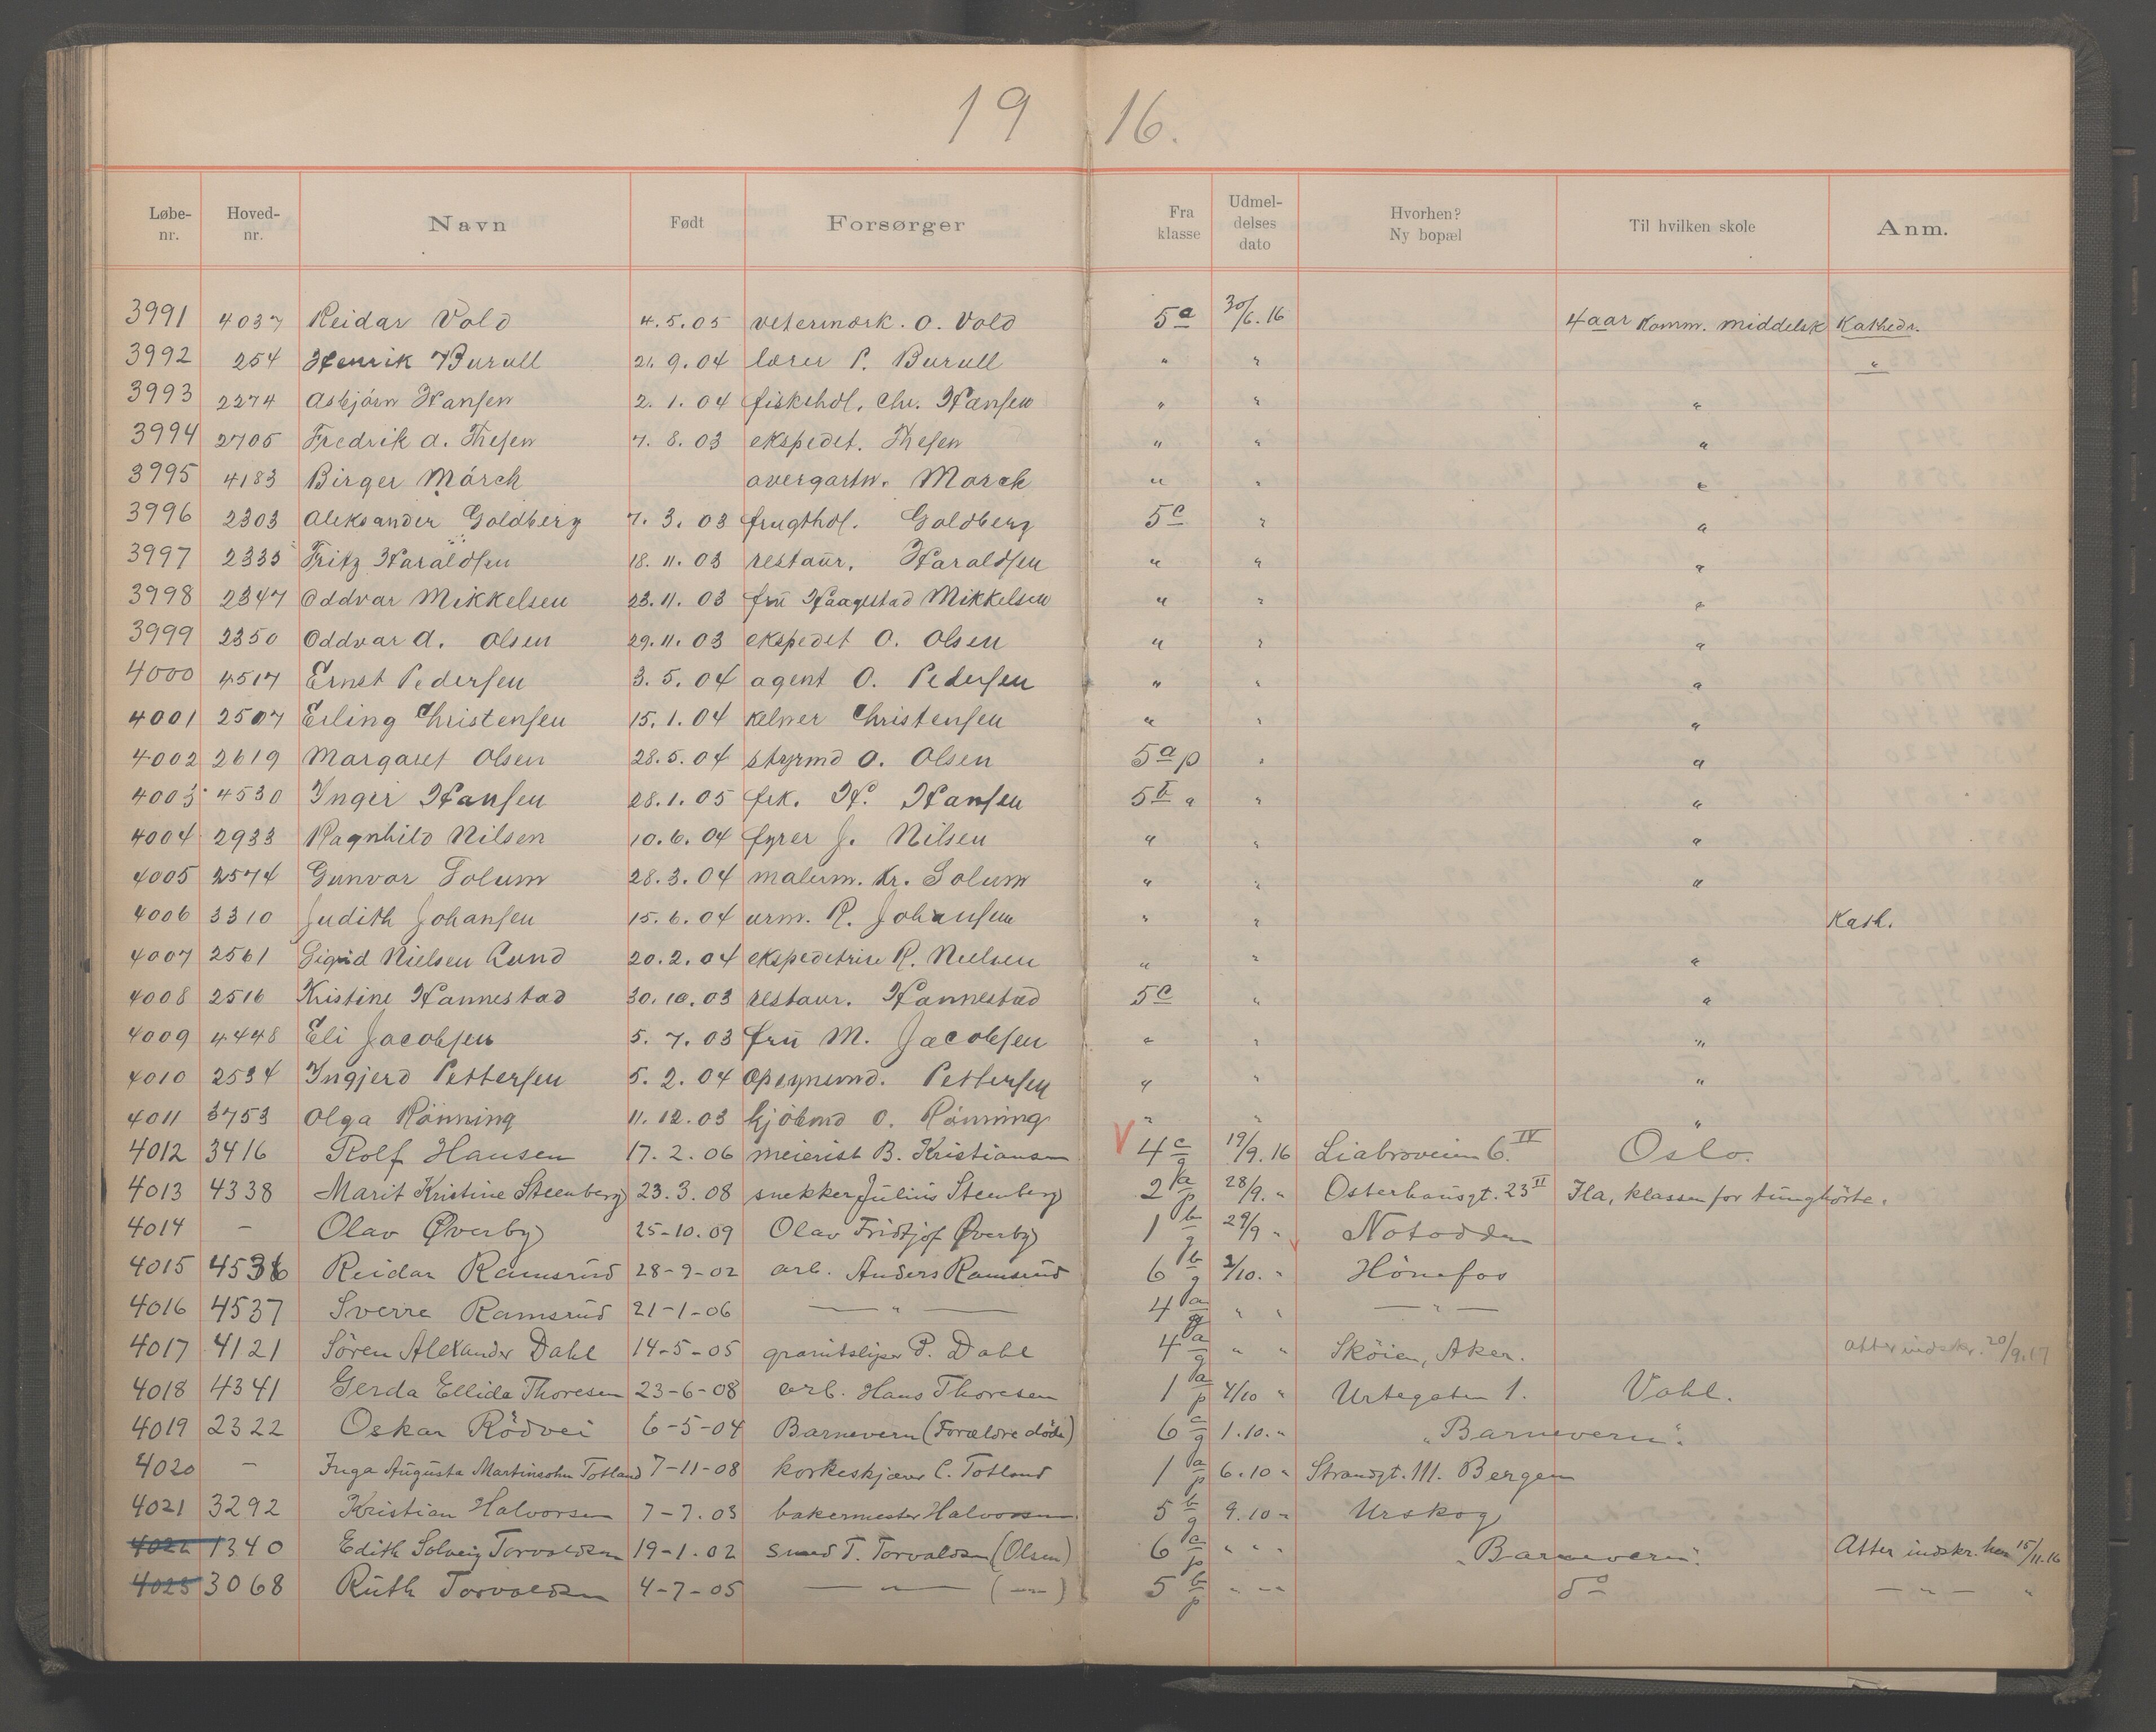 19 16.
Løbe-nr. Hoved-nr. Navn Født Forsørger Fra klasse Udmeldelses dato Hvorhen? Ny bopæl Til hvilken skole Anm.
3991 4037 Reidar Vold 4.5.05 veterinærk. O. Vold 5a 30/6.16 4aar Komm. middelsk Kathedr.
3992 254 Henrik Burull 21.9.04 lærer P. Burull " " "
3993 2274 Asbjörn Hansen 2.1.04 fiskehdl. Chr. Hansen " " "
3994 2705 Fredrik A. Thesen 7.8.03 ekspedet. Thesen " " "
3995 4183 Birger Mörch overgartn. Mörch " " "
3996 2303 Aleksander Goldberg 7.3.03 frugthdl. Goldberg 5c " "
3997 2335 Fritz Haraldsen 18.11.03 restaur. Haraldsen " " "
3998 2347 Oddvar Mikkelsen 23.11.03 fru Haagestad Mikkelsen " " "
3999 2350 Oddvar A. Olsen 29.11.03 ekspedet O. Olsen " " "
4000 4517 Ernst Pedersen 3.5.04 agent O. Pedersen " " "
4001 2507 Erling Christensen 15.1.04 kelner Christensen " " "
4002 2619 Margaret Olsen 28.5.04 styrmd O. Olsen 5a p " "
4003 4530 Inger Hansen 28.1.05 frk. H. Hansen 5b " " "
4004 2933 Ragnhild Nilsen 10.6.04 fyrer J. Nilsen " " "
4005 2574 Gunvor Solum 28.3.04 malerm. Kr. Solum " " "
4006 3310 Judith Johansen 15.6.04 urm. R. Johansen " " Kath.
4007 2561 Sigrid Nielsen Lund 20.2.04 ekspeditrise R. Nielsen " " "
4008 2516 Kristine Hannestad 30.10.03 restaur. Hannestad 5c " "
4009 4448 Eli Jacobsen 5.7.03 fru M. Jacobsen " " "
4010 2534 Ingjerd Pettersen 5.2.04 opsynsmd. Pettersen " " "
4011 3753 Olga Rönning 11.12.03 kjöbmd O. Rönning " " "
4012 3416 Rolf Hansen 17.2.06 meierist B. Kristiansen V 4 c/g 19/9.16 Liabroveien 6. IV Oslo.
4013 4338 Marit Kristine Steenberg 23.3.08 snekker Julius Steenberg 2 a/p 28/9. " Osterhausgt. 23 II Ila, klassen for tunghörte.
4014 - Olav Øverby 25-10.09 Olav Fridtjof Øverby 1 b/g 29/9 " Notodden
4015 4536 Reidar Ramsrud 28-9-02 arb. Anders Ramsrud 6 b/g 2/10. " Hönefos
4016 4537 Sverre Ramsrud 21-1-06 — " — 4 a/g " " — " —
4017 4121 Sören Alexander Dahl 14-5-05 granitsliper P. Dahl 4 a/g " " Sköien, Aker. atter indskr. 20/9.17
4018 4341 Gerda Ellida Thoresen 23-6-08 arb. Hans Thoresen 1 a/p 4/10 " Urtegaten 1. Vahl.
4019 2322 Oskar Rödvei 6-5-04 Barnevern (Forældre döde) 6 c/g 1.10. " "Barnevern".
4020 - Inga Augusta Martinsohn Totland 7-11-08 korkeskjærer C. Totland 1 a/p 6.10 " Strandgt. 111. Bergen
4021 3292 Kristian Halvorsen 7-7.03 bakermester Halvorsen 5 b/g 9.10 " Urskog
4022 1340 Edith Solveig Torvaldsen 19-1.02 smed T. Torvaldsen (Olsen) 6 a/p " " " "Barnevern". Atter indskr. her 15/11.16
4023 3068 Ruth Torvaldsen 4-7-05 — " — (—"—) 5 b/p " " " do — " — "